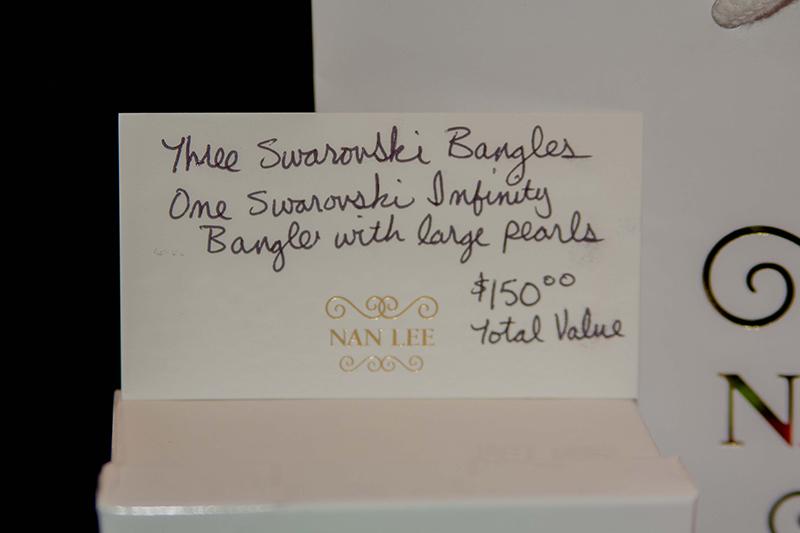 Three Swarovski Bangles
One Swarovski Infinity
Bangle with large pearls
$150⁰⁰
Total Value
NAN LEE
N